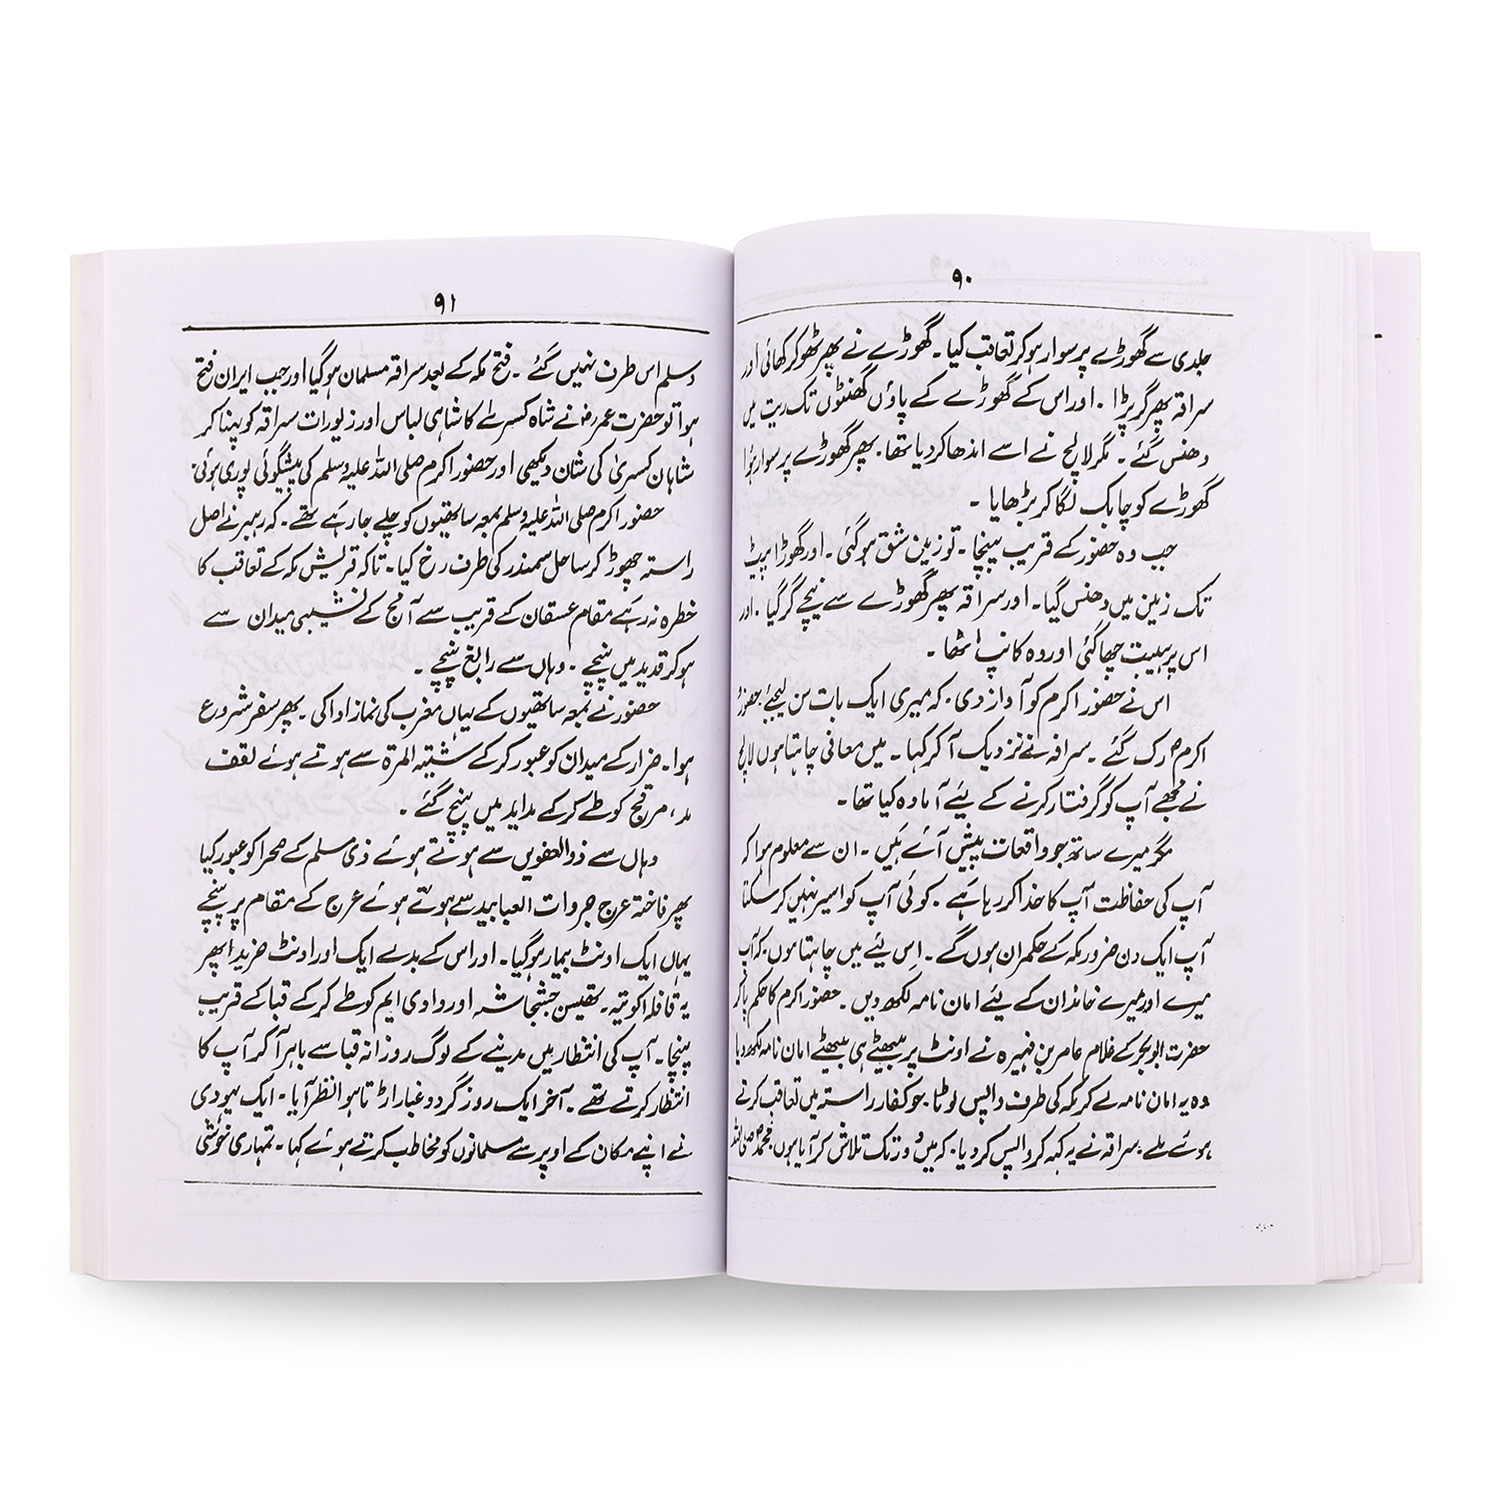 ۹۰
جلدی سے گھوڑے پر سوار ہو کر تعاقب کیا۔ گھوڑے نے پھر ٹھوکر کھائی اور
سراقہ پھر گر پڑا ۔ اور اس کے گھوڑے کے پاؤں گھٹنوں تک ریت میں
دھنس گئے ۔ مگر لالچ نے اسے اندھا کر دیا تھا۔ پھر گھوڑے پر سوار ہوا
گھوڑے کو چابک لگا کر بڑھایا ۔
جب وہ حضور کے قریب پہنچا ۔ تو زمین شق ہو گئی ۔ اور گھوڑا پیٹ
تک زمین میں دھنس گیا۔ اور سراقہ پھر گھوڑے سے نیچے گر گیا ۔ اور
اس پر ہیبت چھا گئی اور وہ کانپ اٹھا ۔
اس نے حضور اکرم کو آواز دی ۔ کہ میری ایک بات سن لیجئے حضور
اکرم رک گئے ۔ سراقہ نے نزدیک آ کر کہا ۔ میں معافی چاہتا ہوں لالچ
نے مجھے آپ کو گرفتار کرنے کے لیے آمادہ کیا تھا ۔
مگر میرے ساتھ جو واقعات پیش آئے ہیں ۔ ان سے معلوم ہوا کہ
آپ کی حفاظت آپ کا خدا کر رہا ہے ۔ کوئی آپ کو اسیر نہیں کر سکتا
آپ ایک دن ضرور مکہ کے حکمران ہوں گے ۔ اِس لیے میں چاہتا ہوں کہ آپ
میرے اور میرے خاندان کے لیے امان نامہ لکھ دیں ۔ حضور اکرم کا حکم پا کر
حضرت ابوبکر کے غلام عامر بن فہیرہ نے اونٹ پر بیٹھے ہی بیٹھے امان نامہ لکھ دیا
وہ یہ امان نامہ لے کر مکہ کی طرف واپس لوٹا ۔ جو کفار راستہ میں تعاقب کرتے
ہوئے ملے ۔ سراقہ نے یہ کہہ کر واپس کر دیا ۔ کہ میں دور تک تلاش کر آیا ہوں محمد صلی اللہ
۹۱
وسلم اس طرف نہیں گئے ۔ فتح مکہ کے بعد سراقہ مسلمان ہو گیا اور جب ایران فتح
ہوا تو حضرت عمر رضؓ نے شاہ کسرےٰ کا شاہی لباس اور زیورات سراقہ کو پہنا کر
شاہان کسریٰ کی شان دیکھی اور حضور اکرم صلی اللہ علیہ وسلم کی پیشگوئی پوری ہوئی۔
حضور اکرم صلی اللہ علیہ وسلم بمعہ ساتھیوں کو چلے جا رہے تھے ۔ کہ رہبر نے اصل
راستہ چھوڑ کر ساحل سمندر کی طرف رخ کیا ۔ تاکہ قریش مکہ کے تعاقب کا
خطرہ نہ رہے مقام عسقان کے قریب سے آمج کے نشیبی میدان سے
ہو کر قدید میں پہنچے ۔ وہاں سے رابغ پہنچے ۔
حضور نے بمعہ ساتھیوں کے یہاں مغرب کی نماز ادا کی ۔ پھر سفر شروع
ہوا ۔ ضرار کے میدان کو عبور کر کے شیتہ المرۃ سے ہوتے ہوئے لقف
مد، مرجح کو طے کر کے مداید میں پہنچ گئے ۔
وہاں سے ذوالعفوین سے ہوتے ہوئے ذی سلم کے صحرا کو عبور کیا
پھر فاختہ عرج جروات العبابید سے ہوتے ہوئے عرج کے مقام پر پہنچے
یہاں ایک اونٹ بیمار ہو گیا ۔ اور اس کے بدلے ایک اور اونٹ خریدا پھر
یہ قافلہ اکوتیہ ۔ بقیس جشجاشہ اور وادی ایم کو طے کر کے قبا کے قریب
پہنچا ۔ آپ کی انتظار میں مدینے کے لوگ روزانہ قبا سے باہر آ کر آپ کا
انتظار کرتے تھے ۔ آخر ایک روز گرد و غبار اڑتا ہوا نظر آیا ۔ ایک یہودی
نے اپنے مکان کے اوپر سے مسلمانوں کو مخاطب کرتے ہوئے کہا ۔ تمہاری خوشی